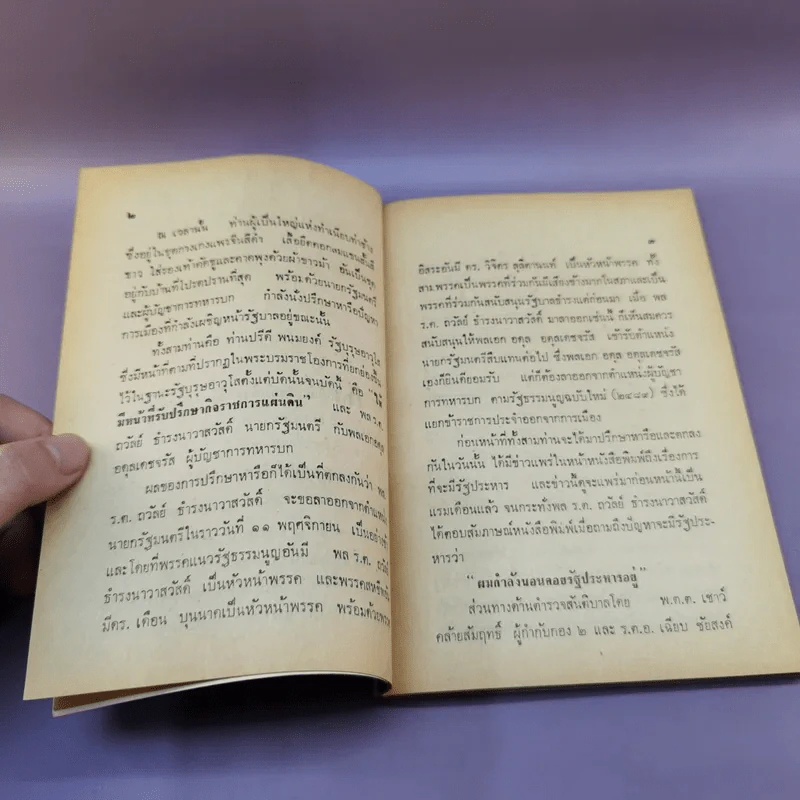 ๒
ณ เวลานั้น ท่านผู้เป็นใหญ่แห่งทำเนียบท่าช้าง
ซึ่งอยู่ในชุดกางเกงแพรจีนสีดำ เสื้อยืดคอกลมแขนสั้นสี
ขาว ใส่รองเท้าคัทชูและคาดพุงด้วยผ้าขาวม้า อันเป็นชุด
อยู่กับบ้านที่โปรดปรานที่สุด พร้อมด้วยนายกรัฐมนตรี
และผู้บัญชาการทหารบก กำลังนั่งปรึกษาหารือปัญหา
การเมืองที่กำลังเผชิญหน้ารัฐบาลอยู่ขณะนั้น
ทั้งสามท่านคือ ท่านปรีดี พนมยงค์ รัฐบุรุษอาวุโส
ซึ่งมีหน้าที่ตามที่ปรากฏในพระบรมราชโองการที่ยกย่องขึ้น
ไว้ในฐานะรัฐบุรุษอาวุโสตั้งแต่บัดนั้นจนบัดนี้ คือ “ให้
มีหน้าที่รับปรึกษากิจราชการแผ่นดิน” และ พล ร.ต.
ถวัลย์ ธำรงนาวาสวัสดิ์ นายกรัฐมนตรี กับพลเอกอดุล
อดุลเดชจรัส ผู้บัญชาการทหารบก
ผลของการปรึกษาหารือก็ได้เป็นที่ตกลงกันว่า พล
ร.ต. ถวัลย์ ธำรงนาวาสวัสดิ์ จะขอลาออกจากตำแหน่ง
นายกรัฐมนตรีในราววันที่ ๑๑ พฤศจิกายน เป็นอย่างช้า
และโดยที่พรรคแนวรัฐธรรมนูญอันมี พล ร.ต. ถวัลย์
ธำรงนาวาสวัสดิ์ เป็นหัวหน้าพรรค และพรรคสหชีพอัน
มีดร. เดือน บุนนาคเป็นหัวหน้าพรรค พร้อมด้วยพรรค
๓
อิสระอันมี ดร. วิจิตร ลุลิตานนท์ เป็นหัวหน้าพรรค ทั้ง
สามพรรคเป็นพรรคที่ร่วมกันมีเสียงข้างมากในสภาและเป็น
พรรคที่ร่วมกันสนับสนุนรัฐบาลธำรงแต่ก่อนมา เมื่อ พล
ร.ต. ถวัลย์ ธำรงนาวาสวัสดิ์ มาลาออกเช่นนี้ ก็เห็นสมควร
สนับสนุนให้พลเอก อดุล อดุลเดชจรัส เข้ารับตำแหน่ง
นายกรัฐมนตรีสืบแทนต่อไป ซึ่งพลเอก อดุล อดุลเดชจรัส
เองก็ยินดียอมรับ แต่ก็ต้องลาออกจากตำแหน่งผู้บัญชา
การทหารบก ตามรัฐธรรมนูญฉบับใหม่ (๒๔๘๙) ซึ่งได้
แยกข้าราชการประจำออกจากการเมือง
ก่อนหน้าที่ทั้งสามท่านจะได้มาปรึกษาหารือและตกลง
กันในวันนั้น ได้มีข่าวแพร่ในหน้าหนังสือพิมพ์ถึงเรื่องการ
ที่จะมีรัฐประหาร และข่าวนี้ดูจะแพร่มาก่อนหน้านี้เป็น
แรมเดือนแล้ว จนกระทั่งพล ร.ต. ถวัลย์ ธำรงนาวาสวัสดิ์
ได้ตอบสัมภาษณ์หนังสือพิมพ์เมื่อถามถึงปัญหาจะมีรัฐประ-
หารว่า
“ผมกำลังนอนคอยรัฐประหารอยู่”
ส่วนทางด้านตำรวจสันติบาลโดย พ.ต.ต. เชาว์
คล้ายสัมฤทธิ์ ผู้กำกับกอง ๒ และ ร.ต.อ. เฉียบ ชัยสงค์